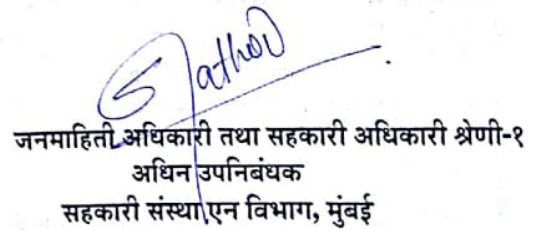 जनमाहिती अधिकारी तथा सहकारी अधिकारी श्रेणी-१
अधिन उपनिबंधक
सहकारी संस्था एन विभाग, मुंबई